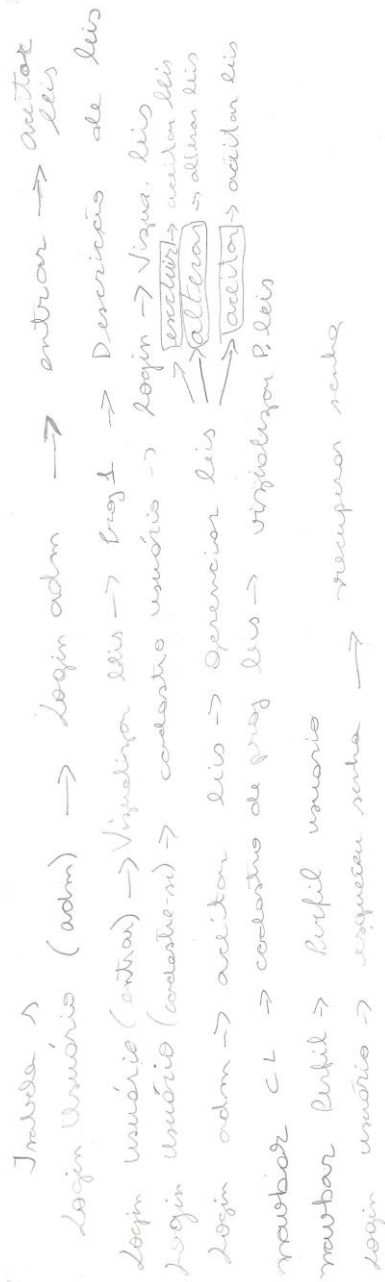 Login Usuário (adm) → Login adm → entrar → aceitar leis
Login usuário (entrar) → Visualizar leis → Proj 1 → Descrição de leis
Login Usuário (cadastre-se) → cadastro usuário → Login → Visua. leis
Login adm → aceitar leis → Gerenciar leis
→ excluir → aceitar leis
→ alterar → alterar leis
→ aceitar → aceitar leis
navbar CL → cadastro de proj leis → visualizar P. leis
navbar Perfil → Perfil usuário
Login usuário → esqueceu senha → recuperar senha